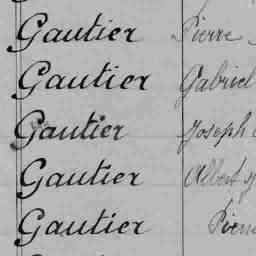 Gautier Pierre
Gautier Gabriel
Gautier Joseph
Gautier Albert
Gautier